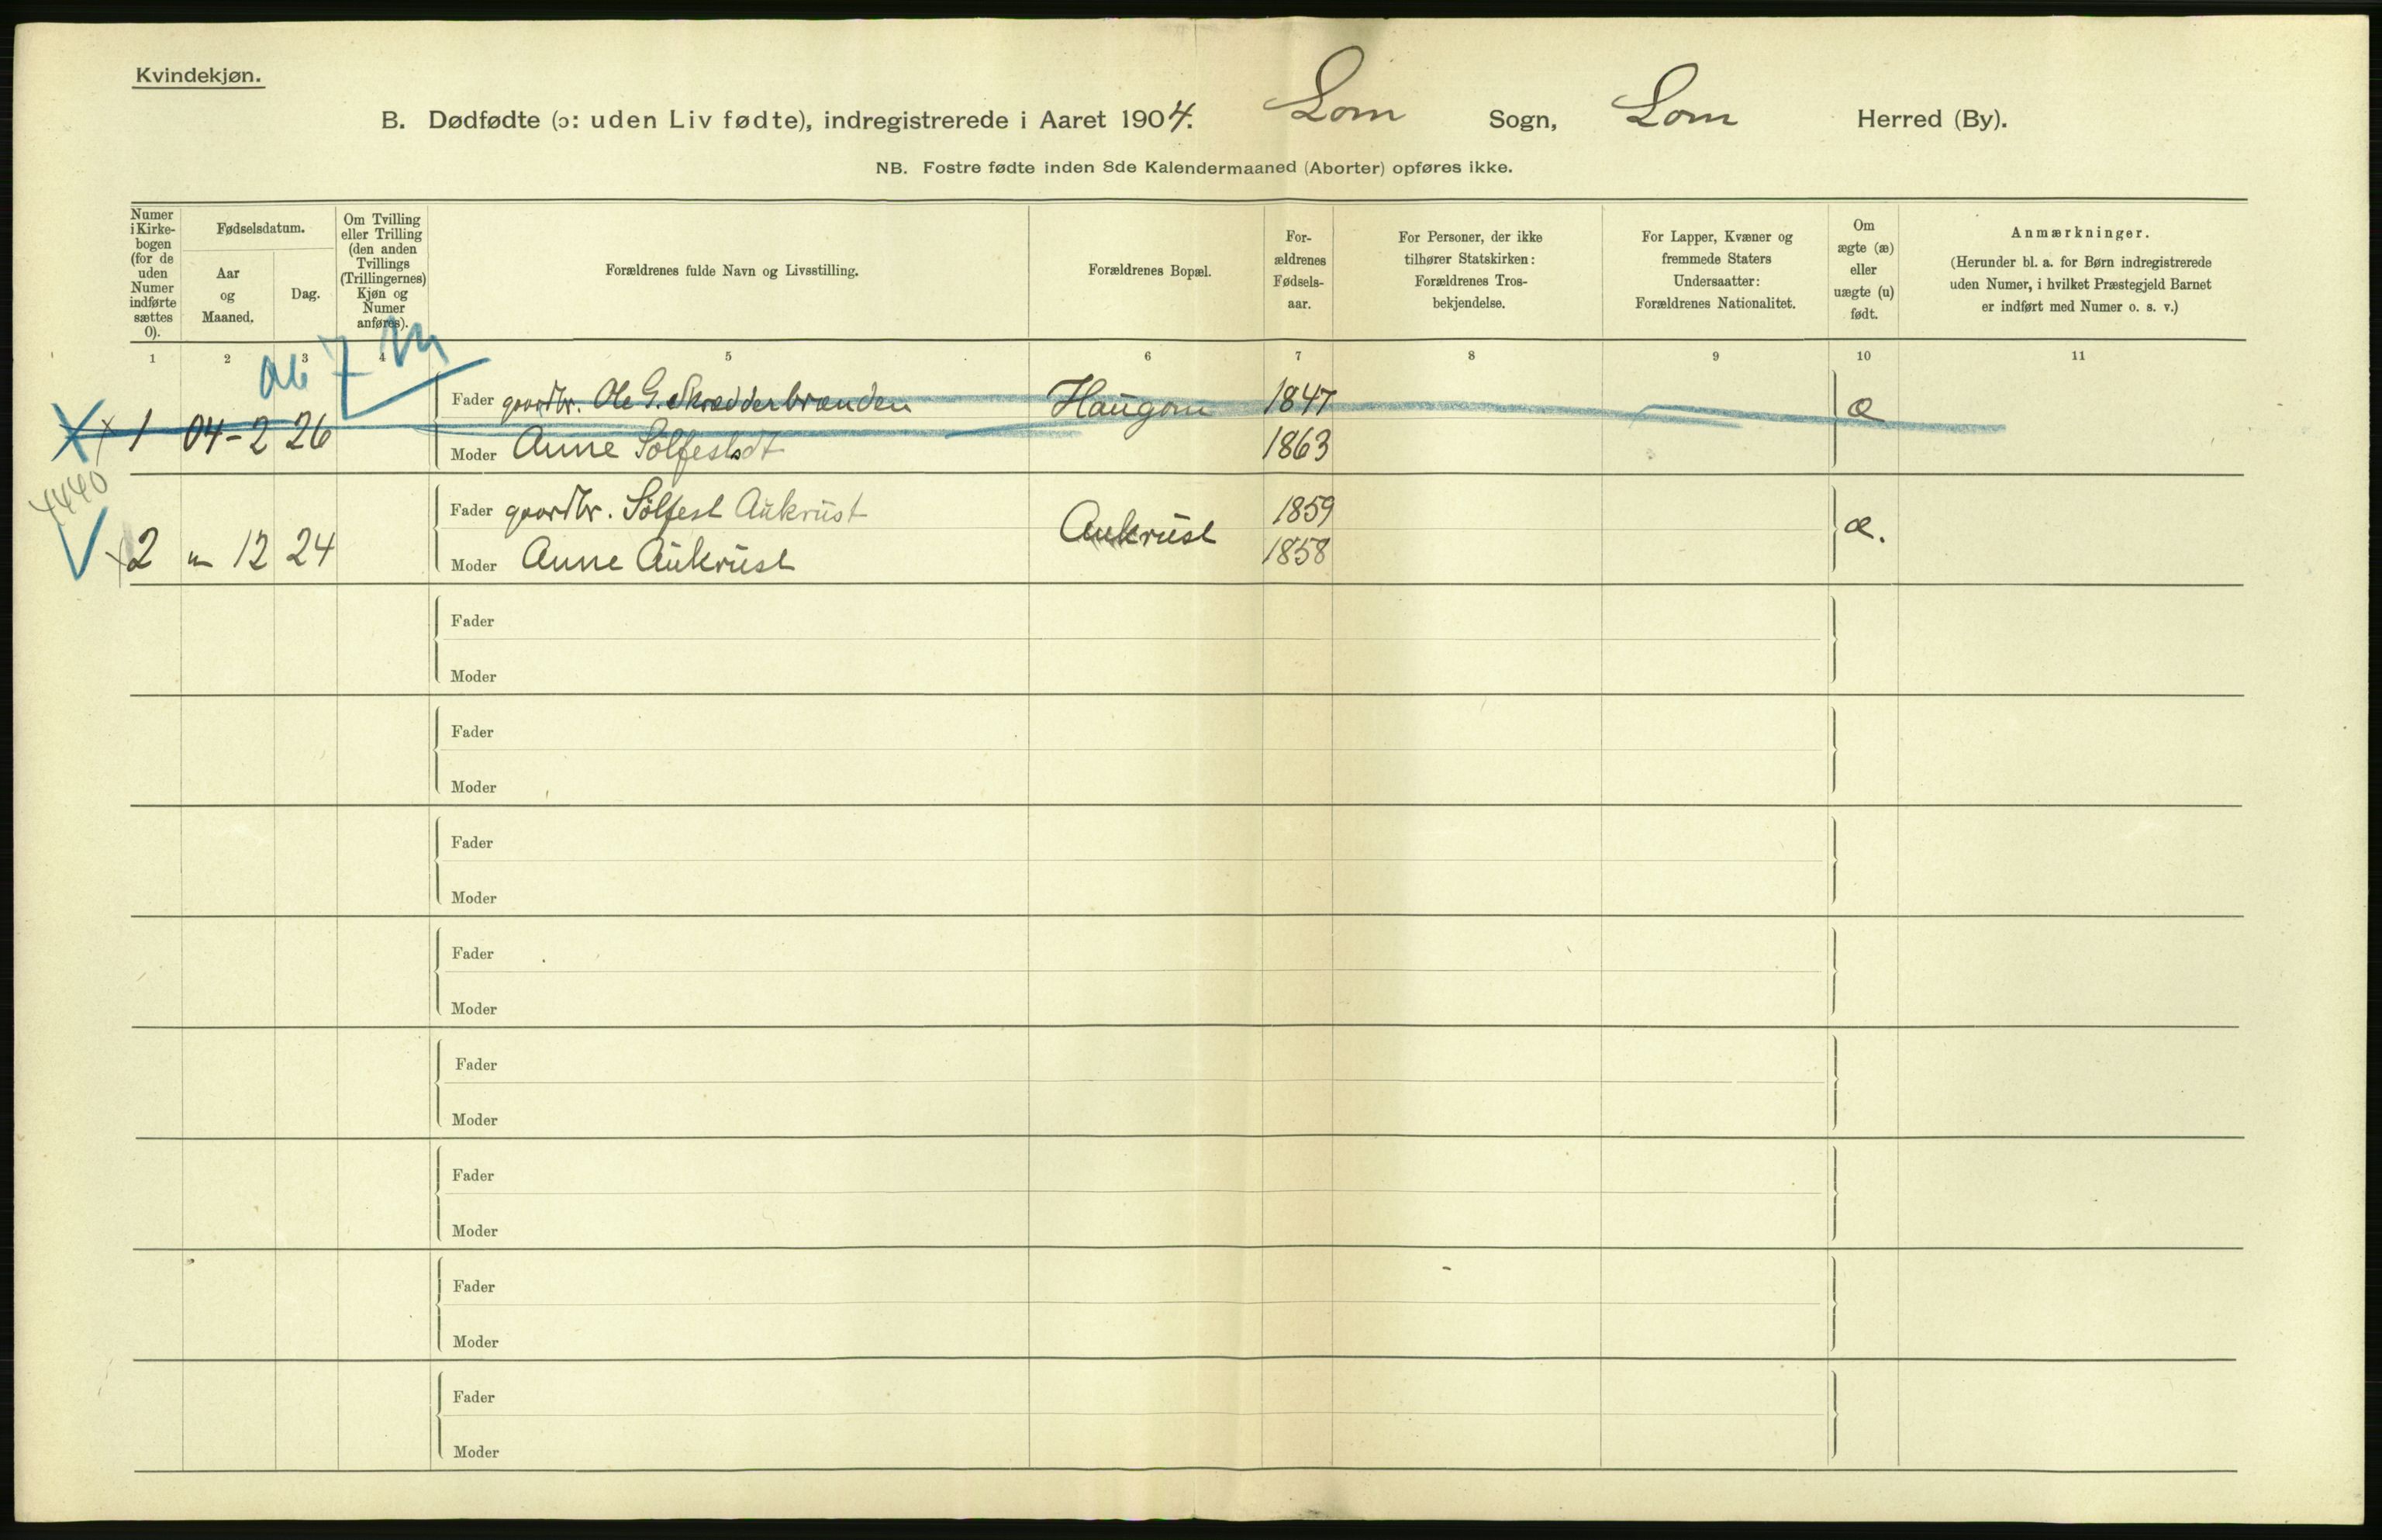 Kvindekjøn.
B. Dødfødte (ɔ: uden Liv fødte), indregistrerede i Aaret 1904. Lom Sogn, Lom Herred (By).
NB. Fostre fødte inden 8de Kalendermaaned (Aborter) opføres ikke.
Numer i Kirke-bogen (for de uden Numer indførte sættes 0).
Fødselsdatum.
Aar og Maaned.
Dag.
Om Tvilling eller Trilling (den anden Tvillings (Trillingernes) Kjøn og Numer anføres).
Forældrenes fulde Navn og Livsstilling.
Forældrenes Bopæl.
For-ældrenes Fødsels-aar.
For Personer, der ikke tilhører Statskirken: Forældrenes Tros-bekjendelse.
For Lapper, Kvæner og fremmede Staters Undersaatter: Forældrenes Nationalitet.
Om ægte (æ) eller uægte (u) født.
Anmærkninger.
(Herunder bl. a. for Børn indregistrerede uden Numer, i hvilket Præstegjeld Barnet er indført med Numer o. s. v.)
1 2 3 4 5 6 7 8 9 10 11
7 m
Fader gaardbr. Ole G. Skrædderbrænden Haugom 1847 æ
1 04-2 26
Moder Anne Sølfestsdt 1863
4440
Fader gaardbr. Sølfest Aukrust Aukrust 1859 æ.
2 " 12 24
Moder Anne Aukrust 1858
Fader
Moder
Fader
Moder
Fader
Moder
Fader
Moder
Fader
Moder
Fader
Moder
Fader
Moder
Fader
Moder